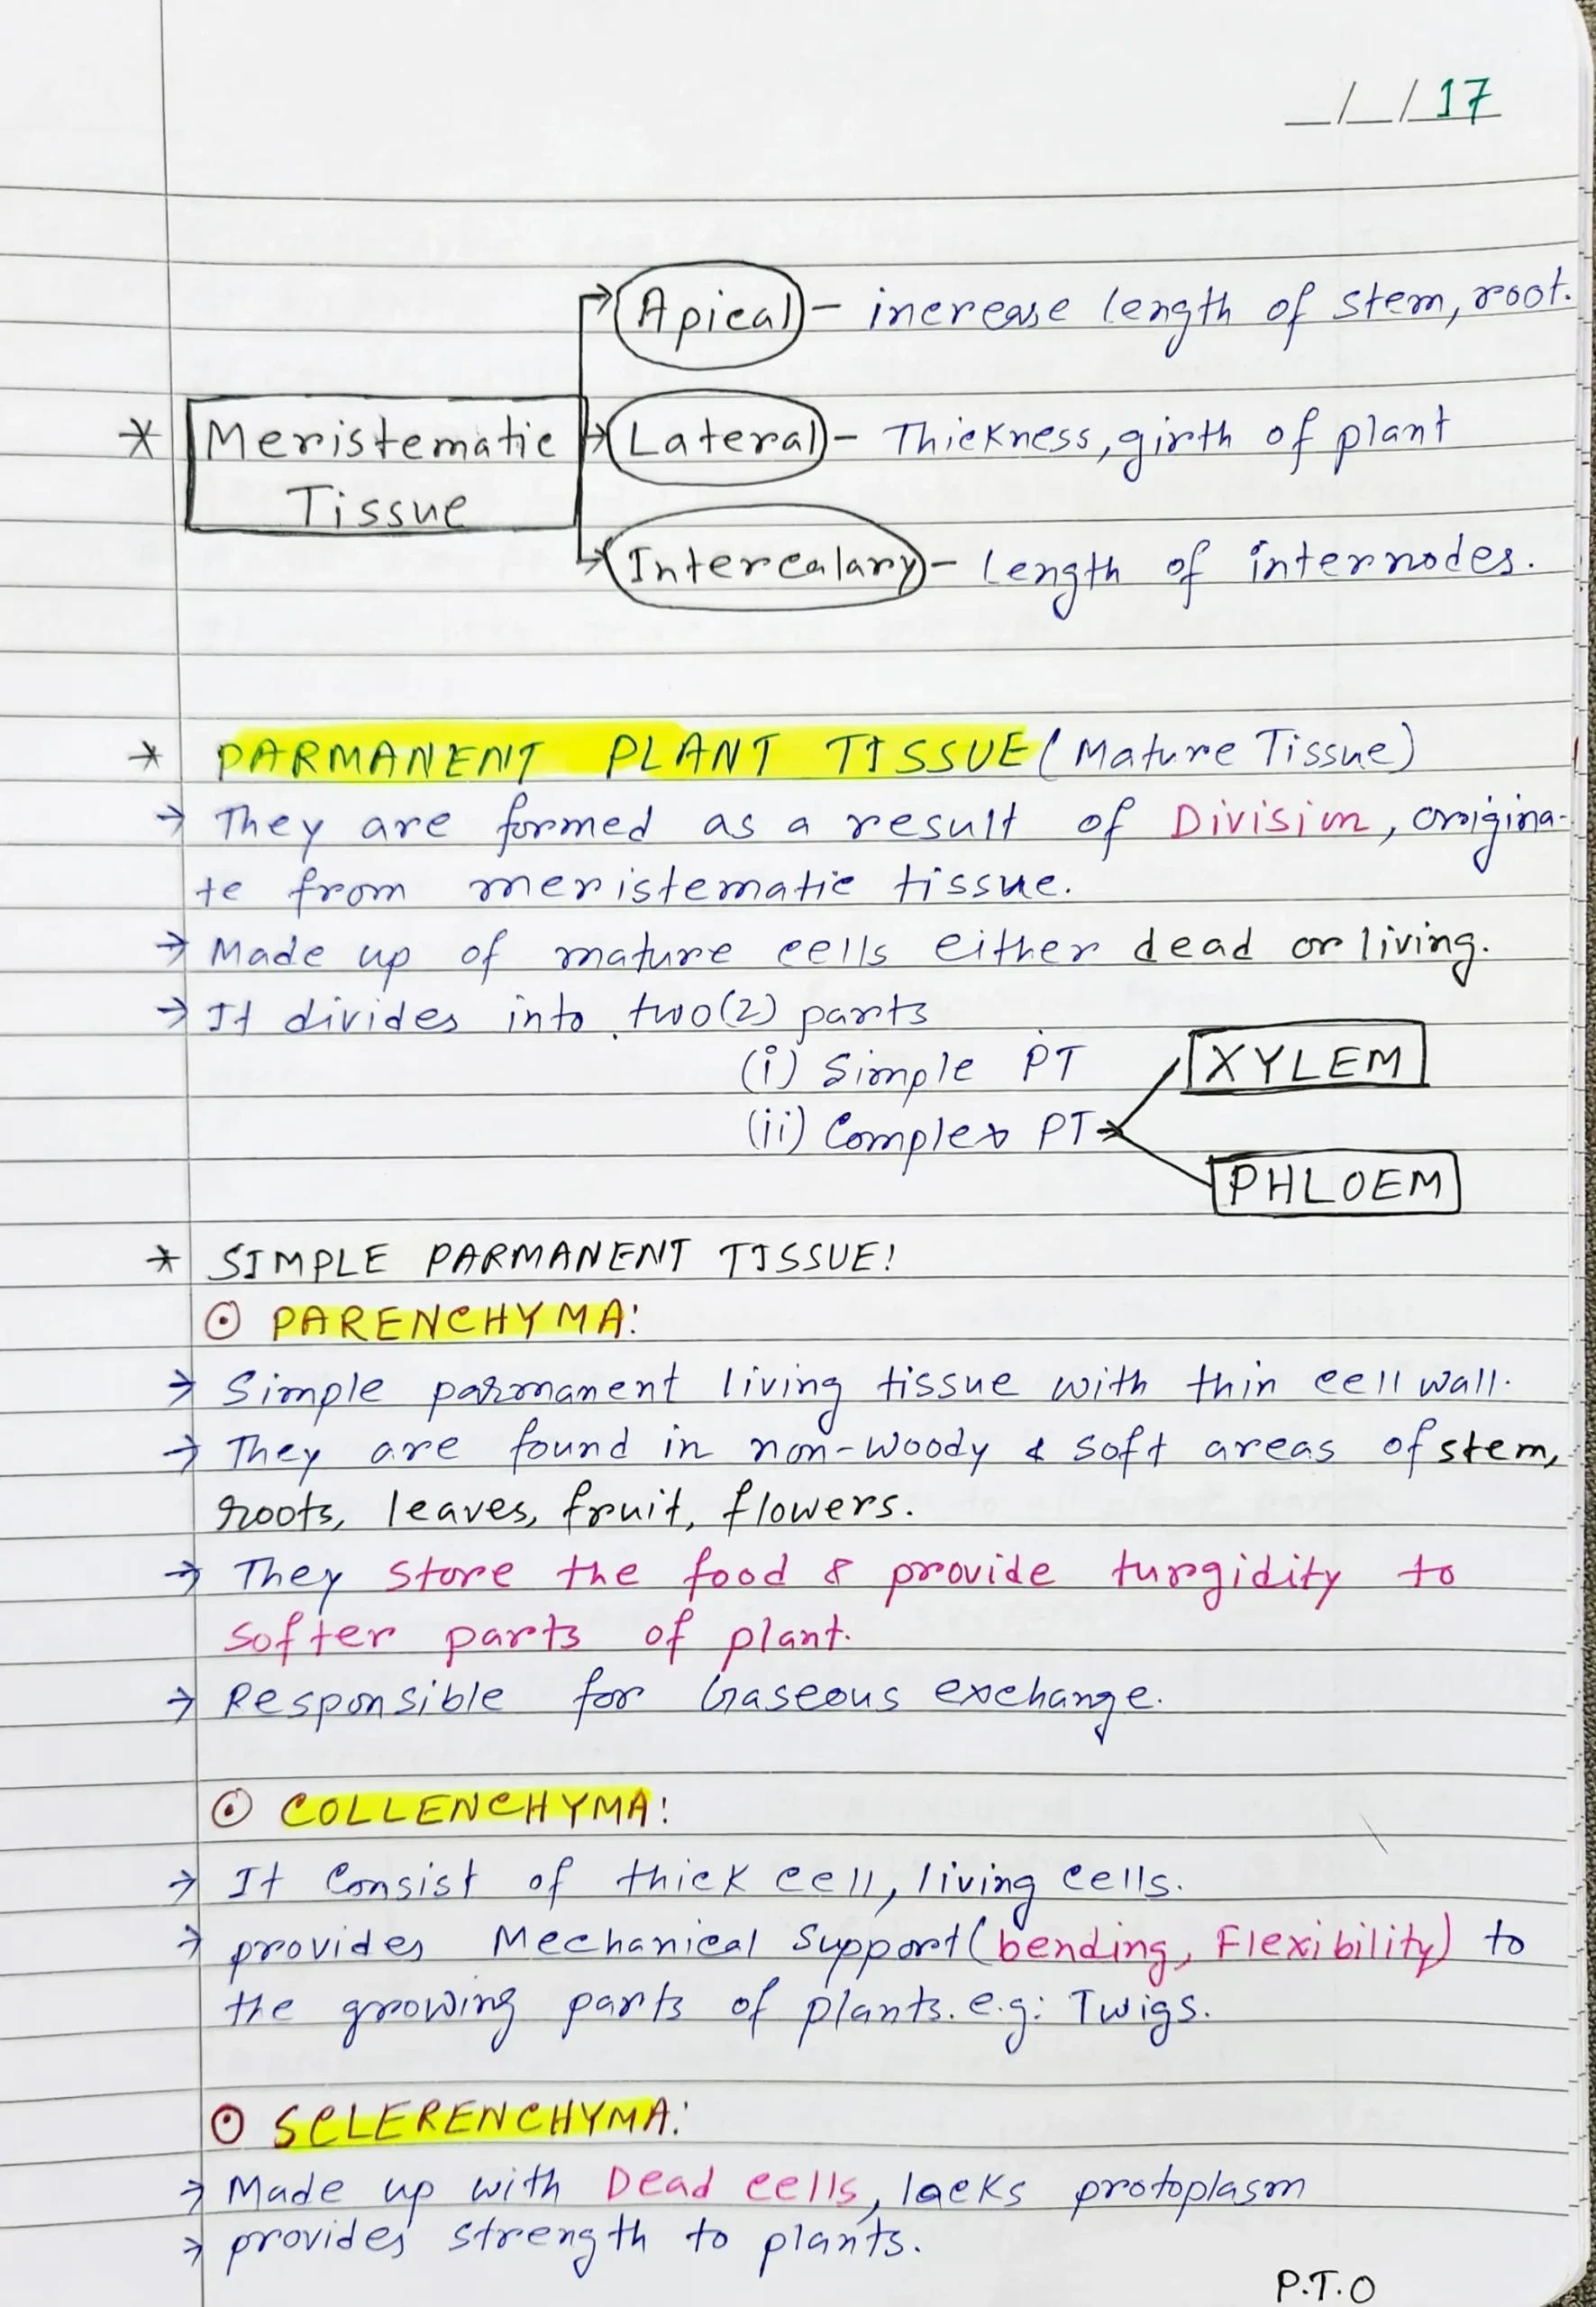 _/_/17
Apical - increase length of stem, root.
* Meristematic Lateral - Thickness, girth of plant
Tissue
Intercalary - length of internodes.
* PARMANENT PLANT TISSUE (Mature Tissue)
→ They are formed as a result of Division, origina-
te from meristematic tissue.
→ Made up of mature cells either dead or living.
→ It divides into two(2) parts
(i) Simple PT XYLEM
(ii) Complex PT
PHLOEM
* SIMPLE PARMANENT TISSUE!
⊙ PARENCHYMA:
→ Simple parmanent living tissue with thin cell wall.
→ They are found in non-woody & soft areas of stem,
roots, leaves, fruit, flowers.
→ They store the food & provide turgidity to
softer parts of plant.
→ Responsible for Gaseous exchange.
⊙ COLLENCHYMA:
→ It Consist of thick cell, living cells.
→ provides Mechanical Support (bending, Flexibility) to
the growing parts of plants. e.g: Twigs.
⊙ SCLERENCHYMA:
→ Made up with Dead cells, lacks protoplasm
→ provides strength to plants.
P.T.O